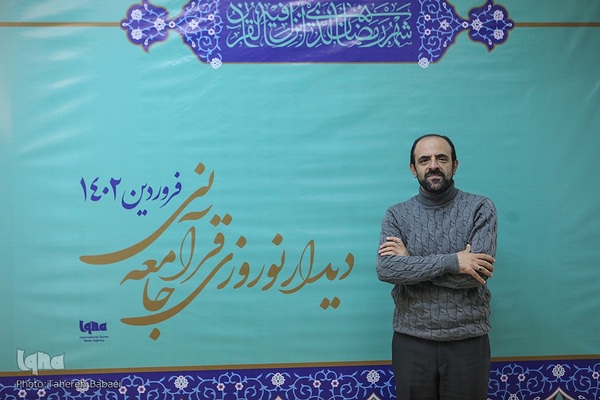 شهر رمضان الذی انزل فیه القرآن
فروردین ۱۴۰۲
دیدار نوروزی جامعه قرآنی
iqna
International Quran
News Agency
iqna
Photo: Tahereh Babaei